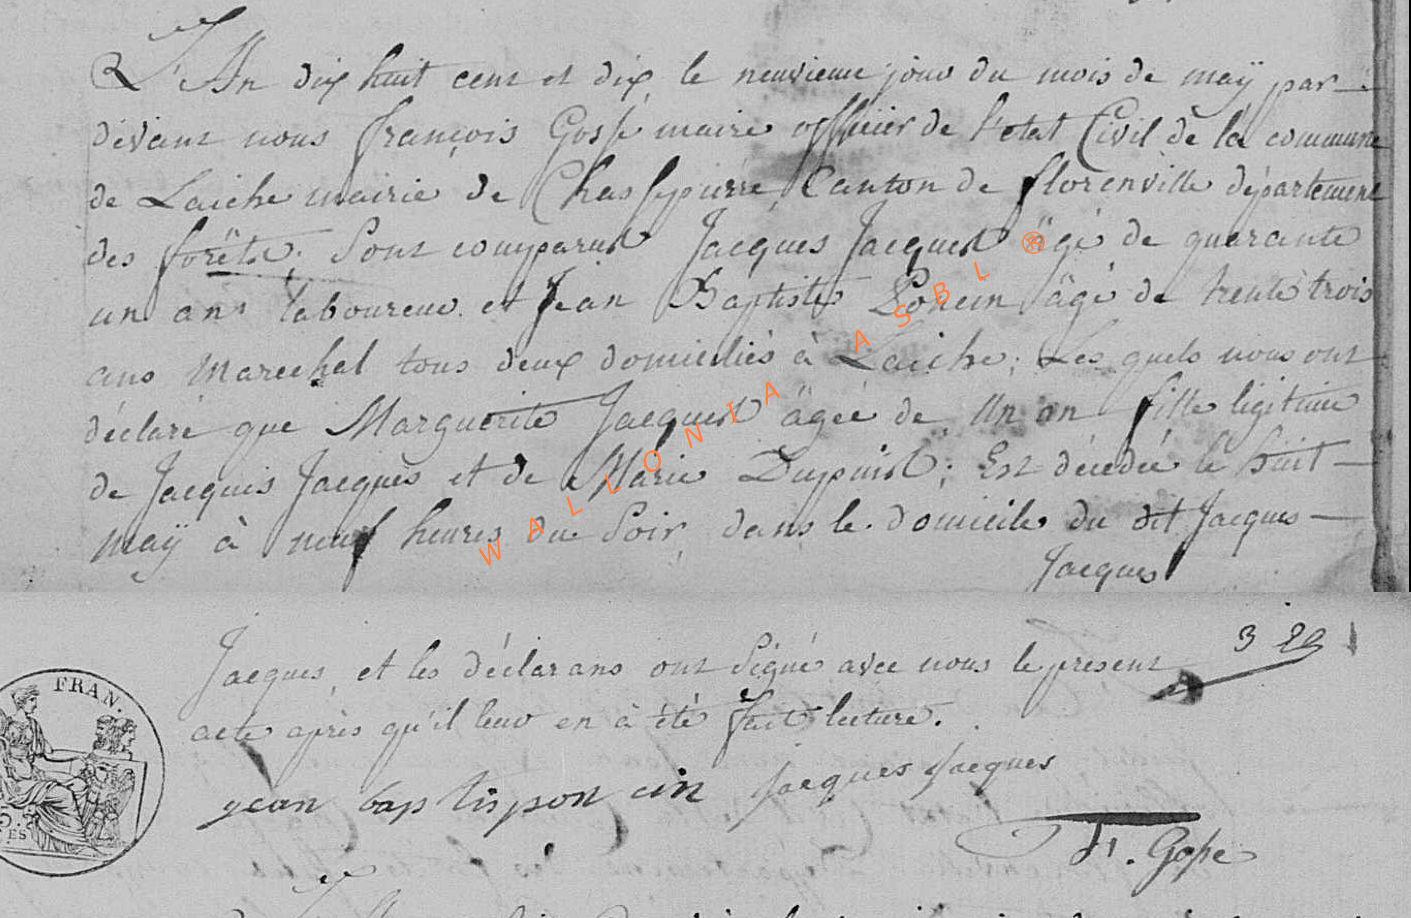 L'An dix huit cent et dix le neuvieme jour du mois de maÿ par-
devant nous françois Gosse maire officier de l'etat Civil de la commune
de Laiche mairie de Chassepierre Canton de florenville département
des forêts. Sont comparus Jacques Jacques âgé de quarante
un ans laboureur et Jean Baptiste Poncin âgé de trente trois
ans Marechal tous deux domiciliés à Laiche; Les quels nous ont
déclaré que Marguerite Jacques âgée de Un an fille légitime
de Jacques Jacques et de Marie Dupuis; Est décédée le huit
maÿ à neuf heures du Soir dans le domicile du dit Jacques
Jacques
Jacques, et les déclarans ont Signé avec nous le present
acte après qu'il leur en à été fait lecture.
3 29
jean baptis pon cin Jacques Jacques
F. Gosse
FRAN.
WALLONIA ASBL ®